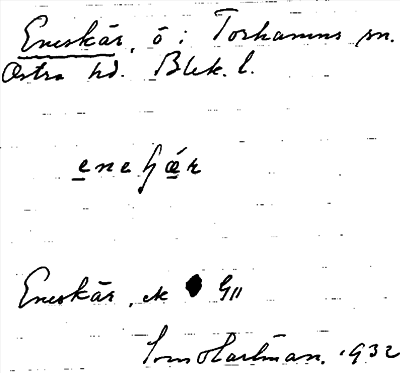 Eneskär, ö i Torhamns sn.
Östra hd. Blek. l.
enehǽr
Eneskär, ek G11
Hartman. 1932